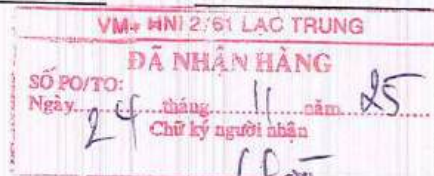 VM+ HNI 2/61 LẠC TRUNG
ĐÃ NHẬN HÀNG
SỐ PO/TO:
Ngày 24 tháng 11 năm 25
Chữ ký người nhận